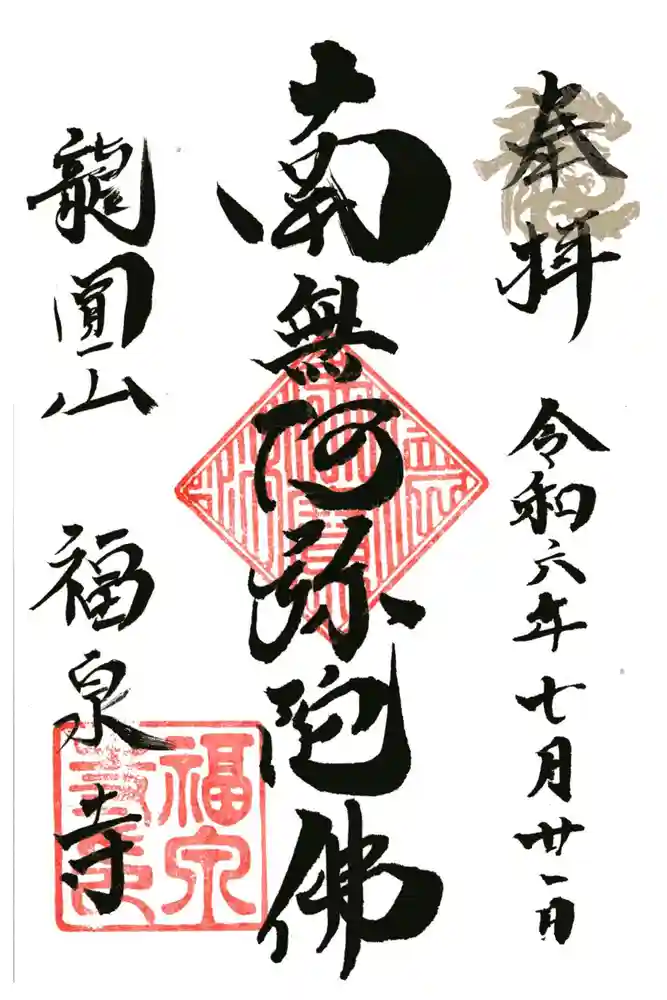 奉拝
令和六年七月廿一日
南無阿弥陀佛
龍圓山
福泉寺
福泉